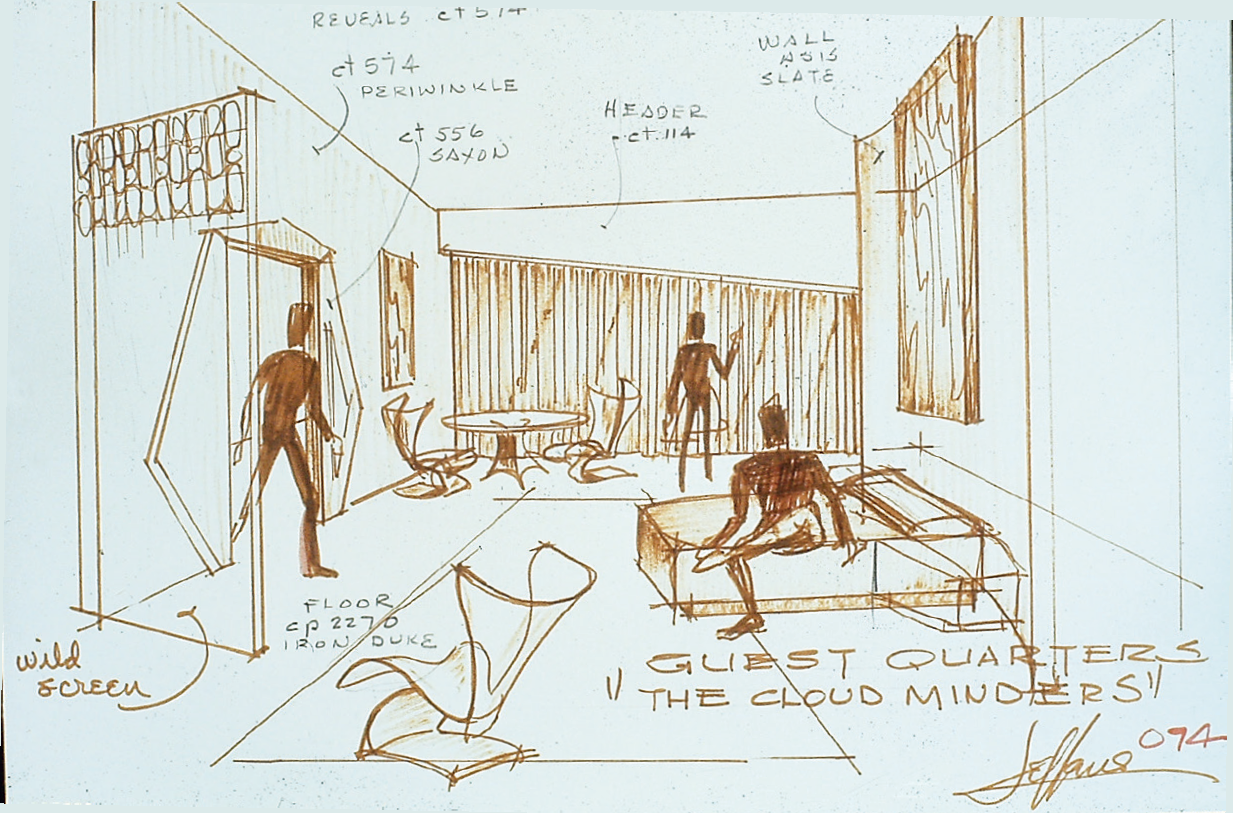 REVEALS ct 574
ct 574
PERIWINKLE
ct 556
SAXON
HEADER
ct.114
WALL
ASIS
SLATE
FLOOR
cp 2270
IRON DUKE
wild
screen
GUEST QUARTERS
"THE CLOUD MINDERS"
Jefferies 094